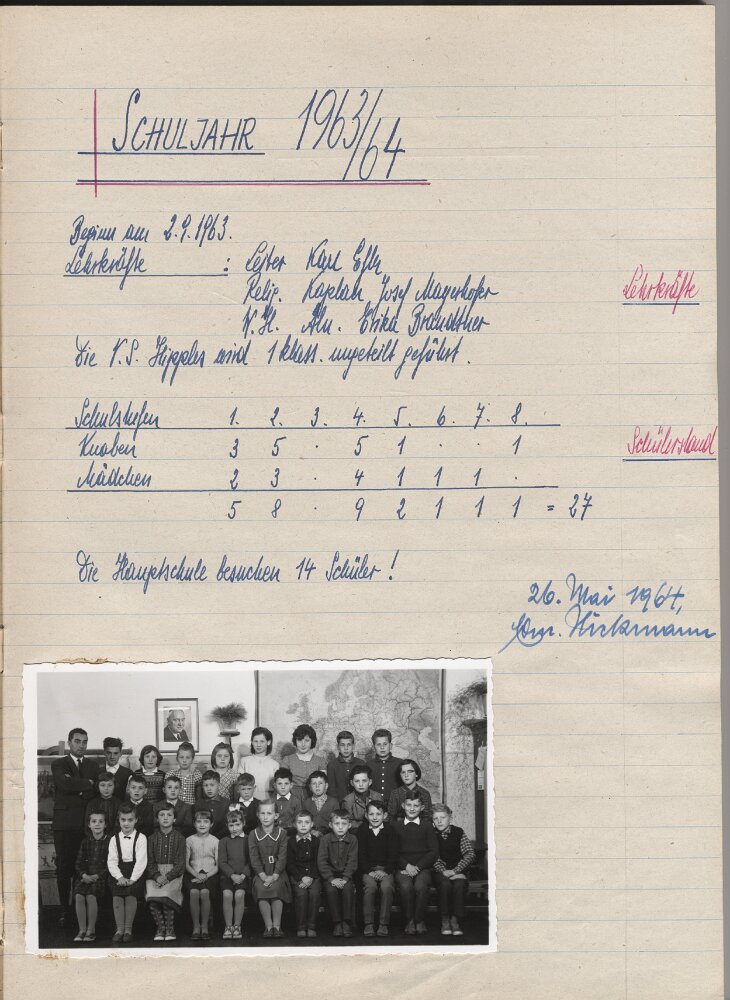 SCHULJAHR 1963/64
Beginn am 2.9.1963.
Lehrkräfte : Leiter Karl
Lehrkräfte
Relig. Kaplan Josef Mayerhofer
W. H. Aln. Erika Brandtner
Die V.S. Hipples wird 1 klass. ungeteilt geführt.
Schulstufen 1. 2. 3. 4. 5. 6. 7. 8.
Knaben 3 5 . 5 1 . . 1
Schülerstand
Mädchen 2 3 . 4 1 1 1 .
5 8 . 9 2 1 1 1 = 27
Die Hauptschule besuchen 14 Schüler!
26. Mai 1964,
Hickmann